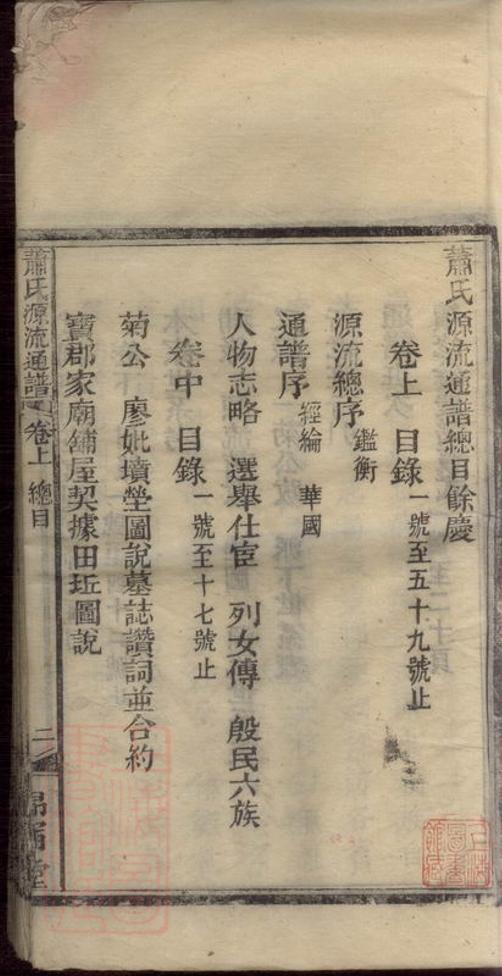 蕭氏源流通譜總目餘慶
卷上 目錄 一號至五十九號止
源流總序 鑑衡
通譜序 經綸 華國
人物志略 選舉仕宦 列女傳 殷民六族
卷中 目錄 一號至十七號止
菊公 廖妣墳塋圖說墓誌讚詞並合約
寶郡家廟舖屋契據田坵圖說
蕭氏源流通譜 卷上 總目 二